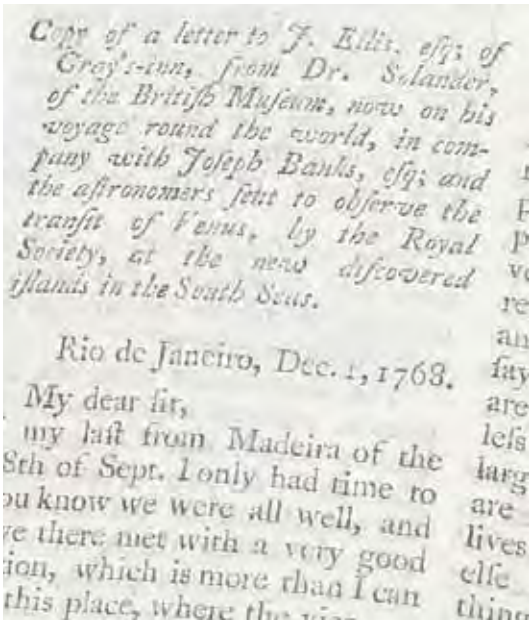 Copy of a letter to J. Ellis, eſq; of
Gray's-inn, from Dr. Solander,
of the Britiſh Muſeum, now on his
voyage round the world, in com-
pany with Joſeph Banks, eſq; and
the aſtronomers ſent to obſerve the
tranſit of Venus, by the Royal
Society, at the new diſcovered
iſlands in the South Seas.
Rio de Janeiro, Dec. 1, 1768.
My dear ſir,
my laſt from Madeira of the
8th of Sept. I only had time to
ou know we were all well, and
ve there met with a very good
tion, which is more than I can
this place, where the vice
ve
re
an
ſay
are
leſs
larg
are
lives
elſe
thing